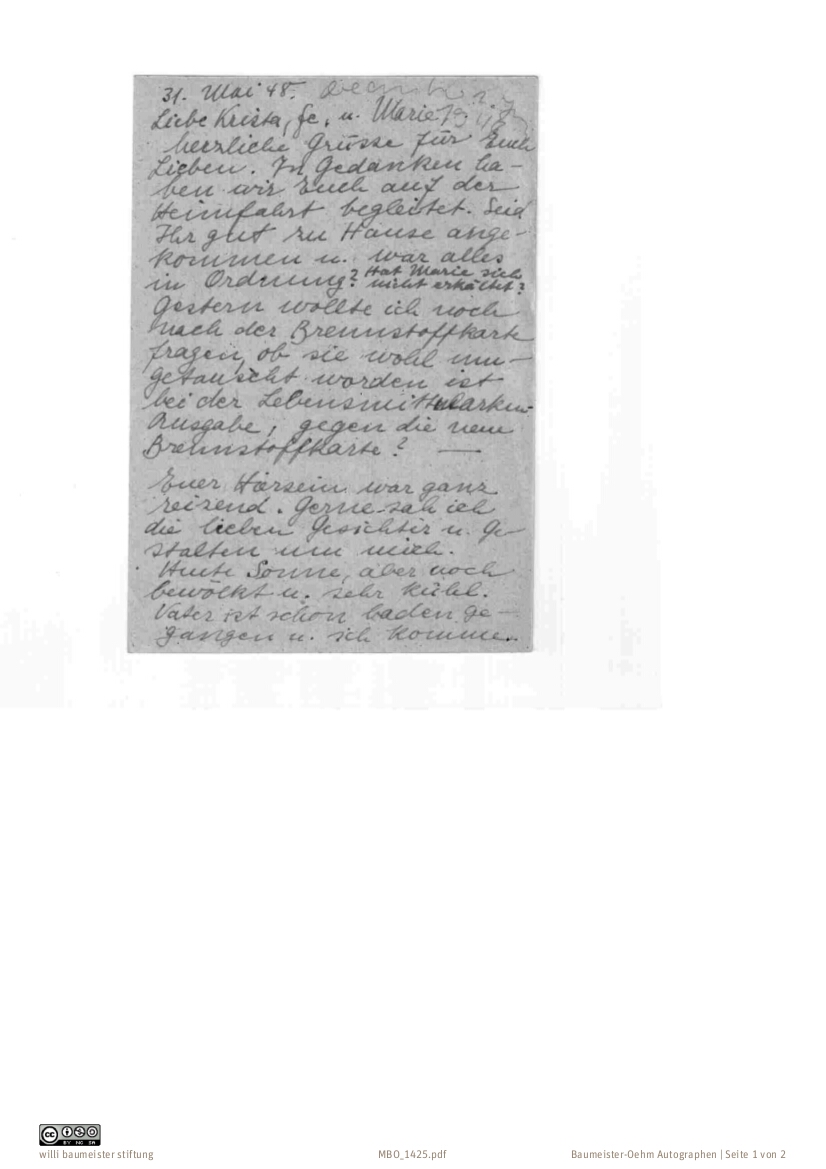 31. Mai 48.
Liebe Krista, Fe, u. Marie
herzliche Grüsse für Euch
Lieben. In Gedanken ha-
ben wir Euch auf der
Heimfahrt begleitet. Seid
Ihr gut zu Hause ange-
kommen u. war alles
in Ordnung? Hat Marie sich
nicht erkältet?
Gestern wollte ich noch
nach der Brennstoffkarte
fragen, ob sie wohl um-
getauscht worden ist
bei der Lebensmittelkarten-
Ausgabe, gegen die neue
Brennstoffkarte? —
Euer Hiersein war ganz
reizend. Gerne sah ich
die lieben Gesichter u. Ge-
stalten um mich.
Heute Sonne, aber noch
bewölkt u. sehr kühl.
Vater ist schon baden ge-
gangen u. ich komme..
CC BY NC SA
willi baumeister stiftung
MBO_1425.pdf
Baumeister-Oehm Autographen | Seite 1 von 2